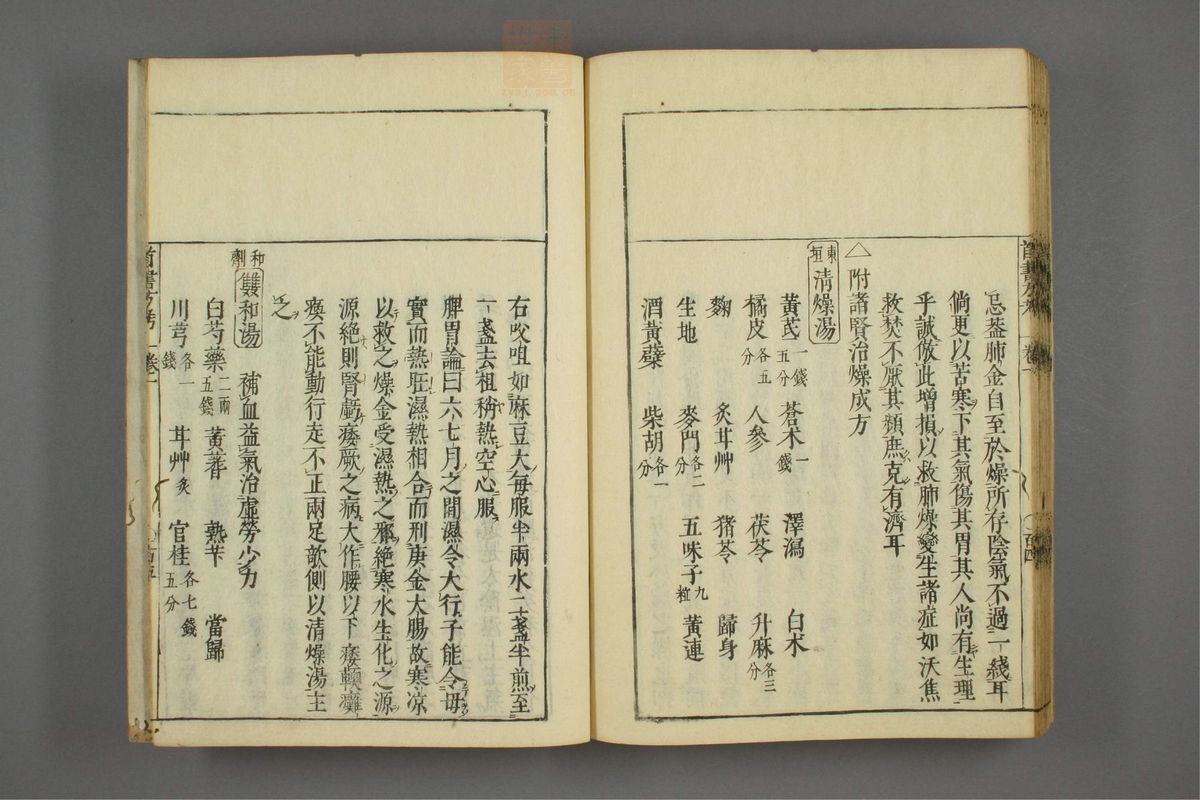 忌蓋肺金自至於燥所存陰氣不過一線耳
倘更以苦寒下其氣傷其胃其人尚有生理
乎誠倣此增損以救肺燥變生諸症如沃焦
救焚不厭其頻庶克有濟耳
△附諸賢治燥成方
東垣 清燥湯
黃芪一錢五分 蒼朮一錢 澤瀉 白朮
橘皮各五分 人參 茯苓 升麻各三分
麴 炙甘艸 猪苓 歸身
生地 麥門各二分 五味子九粒 黃連
酒黃蘗 柴胡各一分
右㕮咀如麻豆大每服半兩水二盞半煎至
一盞去柤稍熱空心服
脾胃論曰六七月之間濕令大行子能令母
實而熱旺濕熱相合而刑庚金大腸故寒凉
以救之燥金受濕熱之邪絕寒水生化之源
源絕則腎虧痿厥之病大作腰以下痿軟癱
瘓不能動行走不正兩足欹側以清燥湯主
之
和劑 雙和湯 補血益氣治虛勞少力
白芍藥二兩五錢 黃蓍 熟芐 當歸
川芎各一錢 甘艸炙 官桂各七錢五分